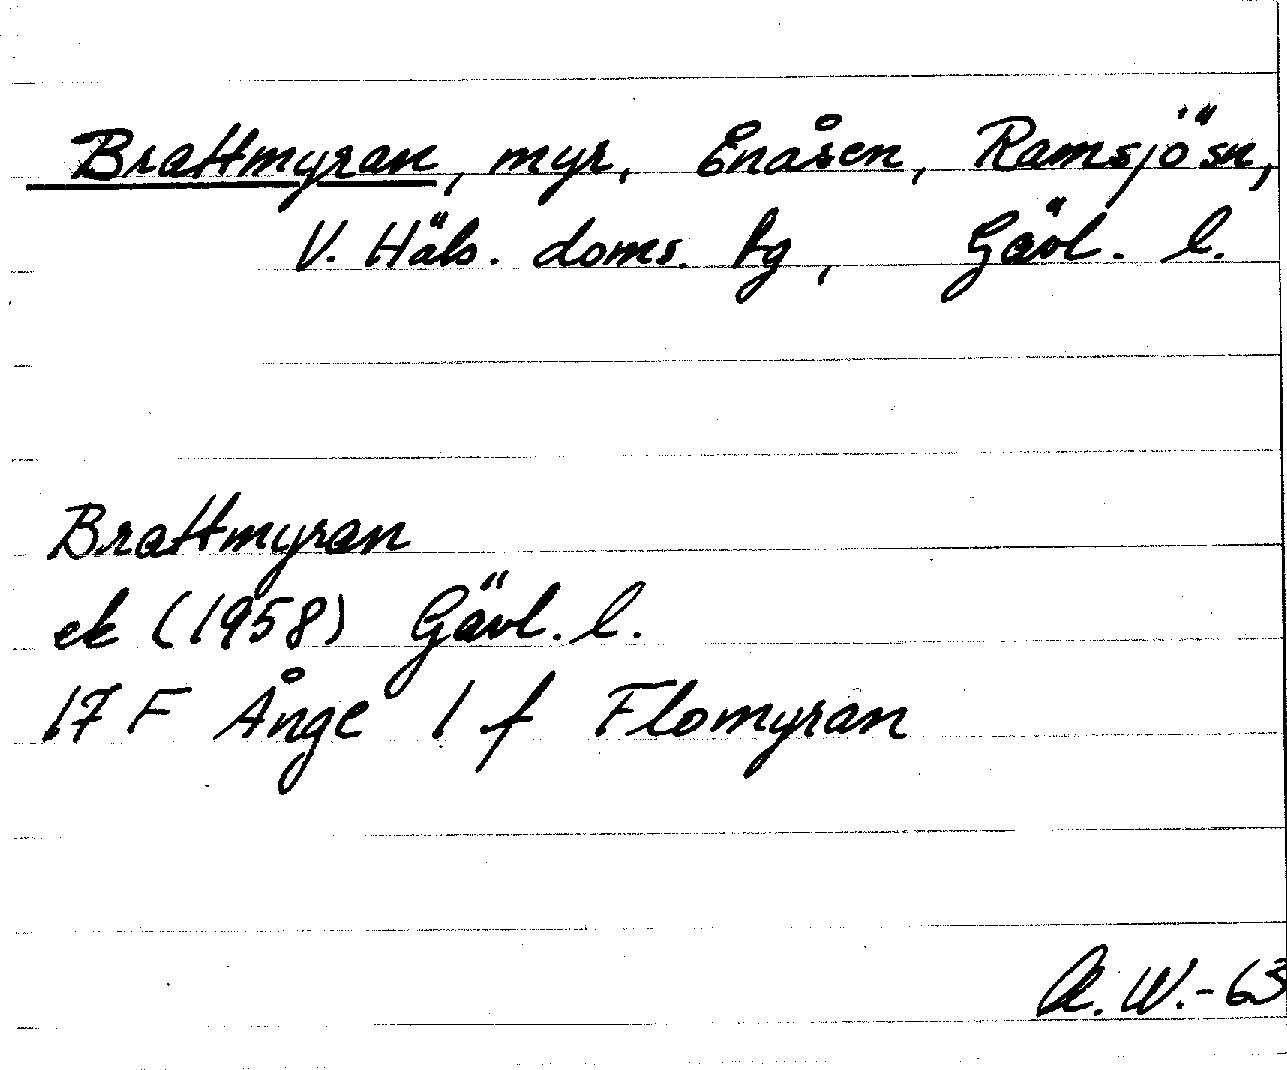 Brattmyran, myr, Enåsen, Ramsjö sn,
V. Häls. doms. tg, Gävl. l.
Brattmyran
ek (1958) Gävl. l.
17 F Ånge 1 f Flomyran
A. W.-63